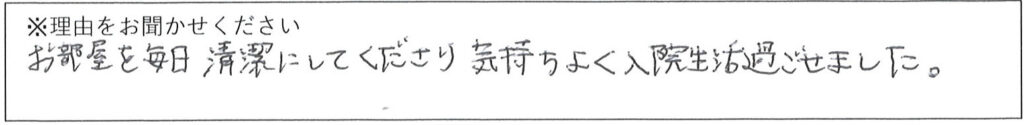 ※理由をお聞かせください
お部屋を毎日 清潔にしてくださり 気持ちよく入院生活過ごせました。